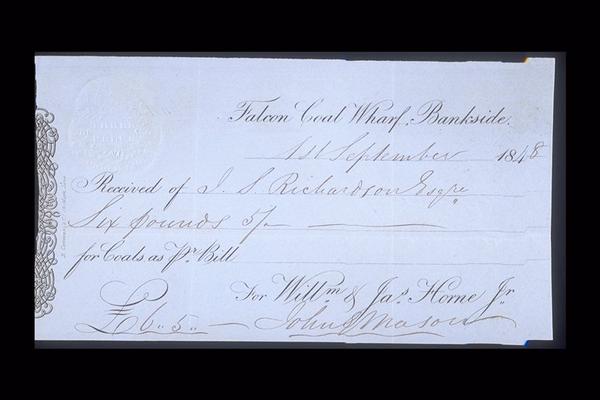 Falcon Coal Wharf, Bankside.
1st September 1848
Received of J. S. Richardson Esqre
Six pounds 5/-
for Coals, as Pr. Bill
For Willm. & Jas. Horne Jr.
£6.. 5.. - John Mason